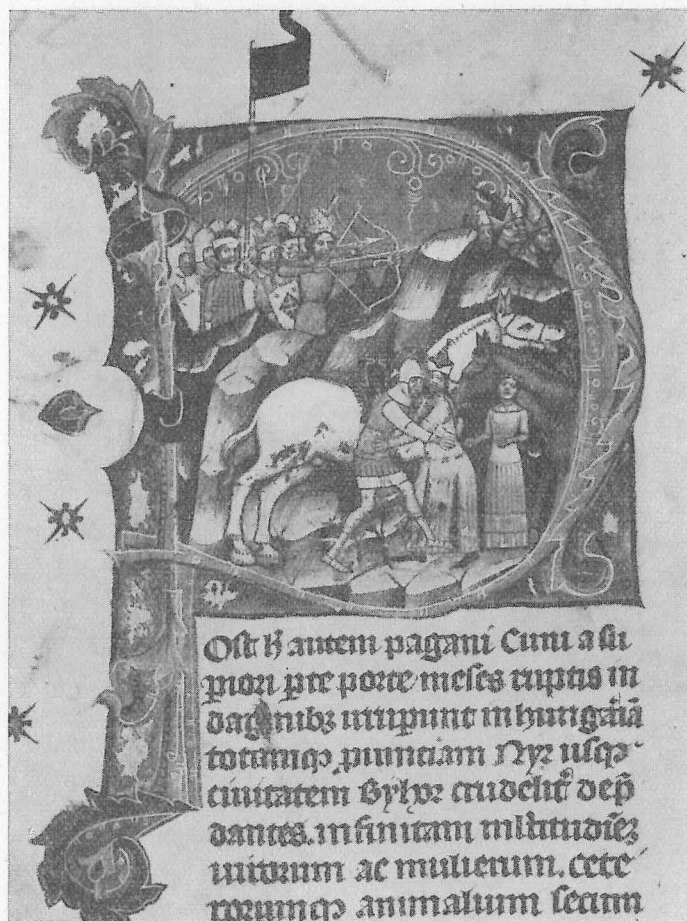 POst h̄ autem pagani Cuni a su
piori p̱te porte meses ruptis in
daginibꝫ irrup̱unt in hungariā
totamqꝫ ꝓuinciam Nyr usqꝫ
ciuitatem Byhor crudelit̓ dep̄
dantes. infinitam ml̓titudīeꝫ
uirorum ac mulierum. cete
rorumqꝫ animalium secum